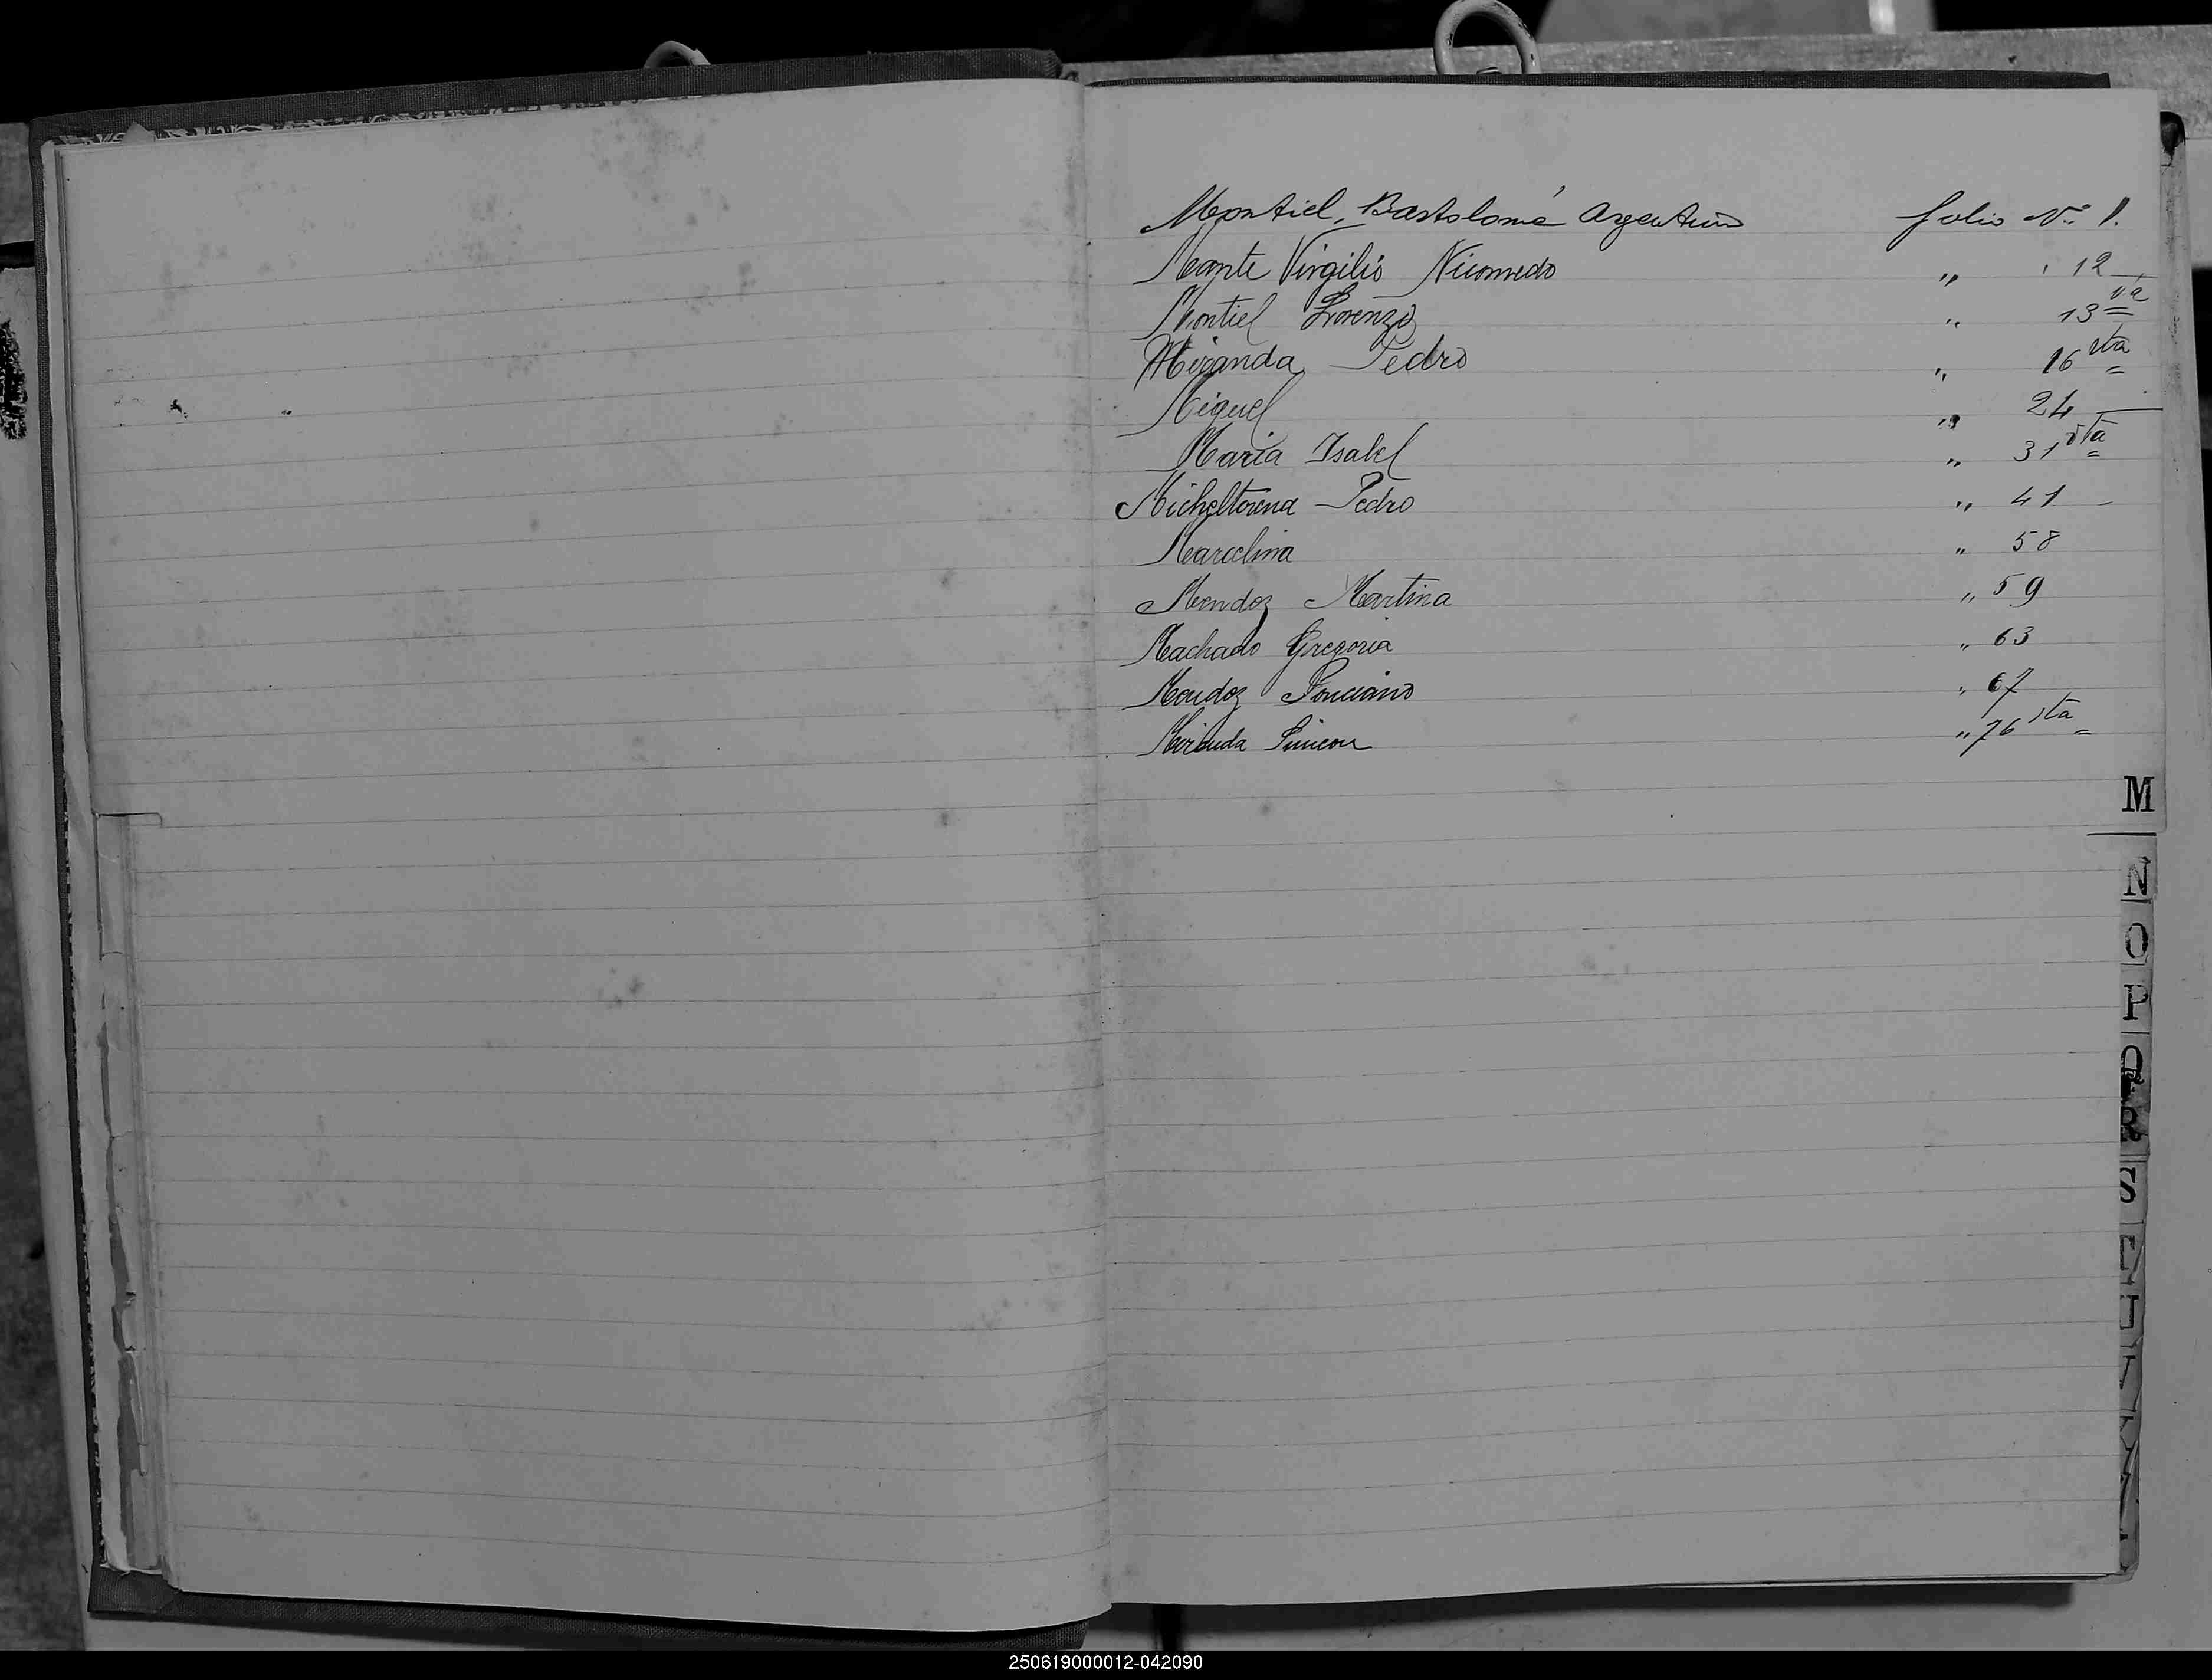 Montiel, Bartolomé Argentino folio Nº 1.
Monte Virgilio Nicomedo " " 12
Montiel Lorenzo " 13 vta
Miranda Pedro " 16 vta
Miguel " 24
Maria Isabel " 31 vta
Micheltorena Pedro " 41
Marcelina " 58
Mendoz Martina " 59
Machado Gregoria " 63
Mendoz Ponciano " 67
Miranda Simeon " 76 vta
M
N
O
P
Q
R
S
T
U
V
250619000012-042090